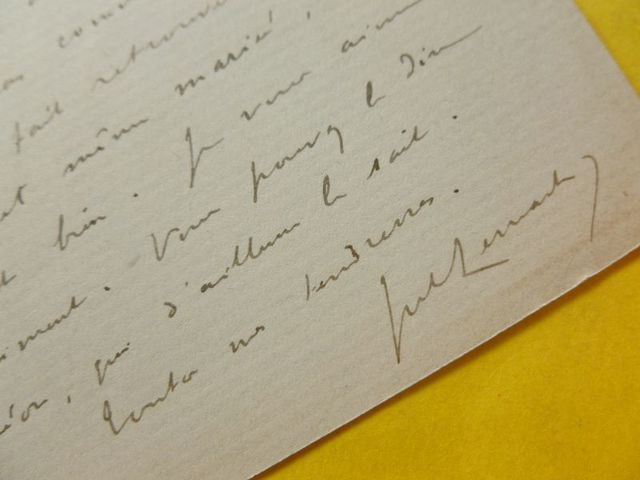 comm
fait retrouve
même marié,
bien. Je vous aime
iment. Vous pouvez le dire
éon, qui d'ailleurs le sait.
Toutes nos tendresses.
Jules Lemaitre